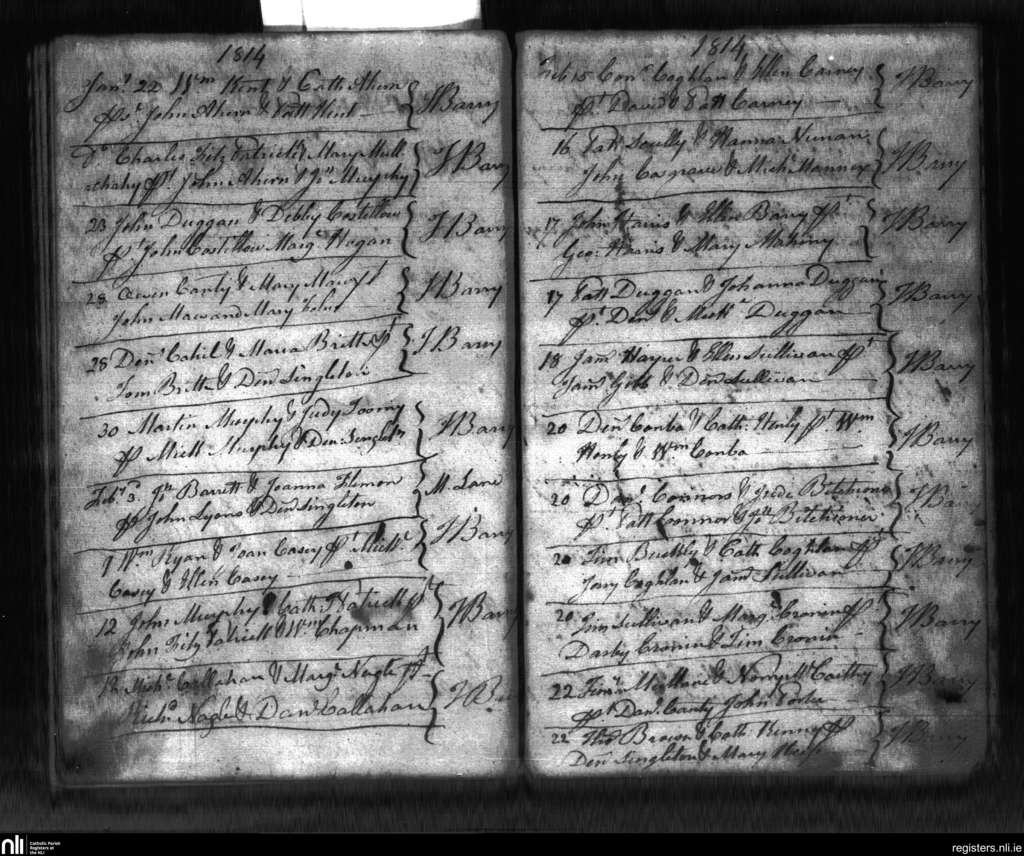 1814
Jany 22 Wm Kent & Cath Ahern
pst John Ahern & Patt Kent JBarry
Do Charles Fitz Patrick & Mary Mull
-chahy pt John Ahern & Jno Murphy JBarry
23 John Duggan & Debby Costillow
pt John Costillow Margt Hogan JBarry
28 Owen Canty & Mary Maw pt
John Maw and Mary JBarry
28 Denn Cahil & Maria Britt pt
Tom Britt & Denn Singleton JBarry
30 Martin Murphy & Judy Toomy
pt Mick Murphy & Den: Singletn JBarry
Feby 3 Jno Barrett & Joanna
pt John Lyons & Den Singleton M. Lane
9 Wm Ryan & Joan Casey pt Mickl
Casey & Ellen Casey JBarry
12 John Murphy & Cath Ftzpatrick pt
John Fitz Patrick & Wm Chapman JBarry
12 Michl Callahan & Margt Nagle pt
Michl Nagle & Danl Callahan JBarry
1814
Feb 15 Cons Coghlan & Ellen Carney
pt David & Patt Carney JBarry
16 Patk Scully & Hanna Nunan
John Cosgrave & Michl Manney JBarry
17 John Harris & Ellen Barry pt
Geo: Harris & Mary Mahiny JBarry
17 Patt Duggan & Johanna Duggan
pt Denl & Mickl Duggan JBarry
18 Jams Harper & Ellen Sullivan pt
Jams Gibb & Denn Sullivan JBarry
20 Denn Conba & Cath: Henly pt Wm
Henly & Wm Conba JBarry
20 Danl Connors & Jude
pt Patt Connor & Jno JBarry
20 Tim Buckly & Cath Coghlan pt
Jery Coghlan & Jams Sullivan JBarry
20 Tim Sullivan & Margt Cronin pt
Darby Cronin & Tim Cronin JBarry
22 & Norry McCarthy
pt Danl Canty John JBarry
22 Thos Brown & Cath Kinny pt
Denn Singleton & Mary JBarry
nli
Catholic Parish
Registers at
the NLI
registers.nli.ie